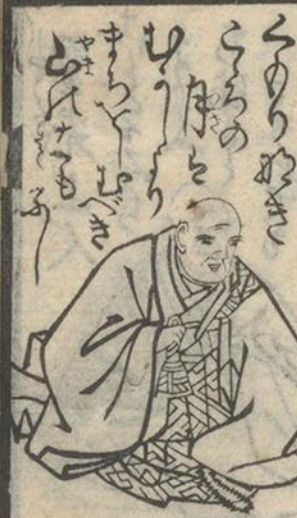 くもりなき
こゝろの
月は
むかしより
まちをしむべき
山のはも
なし